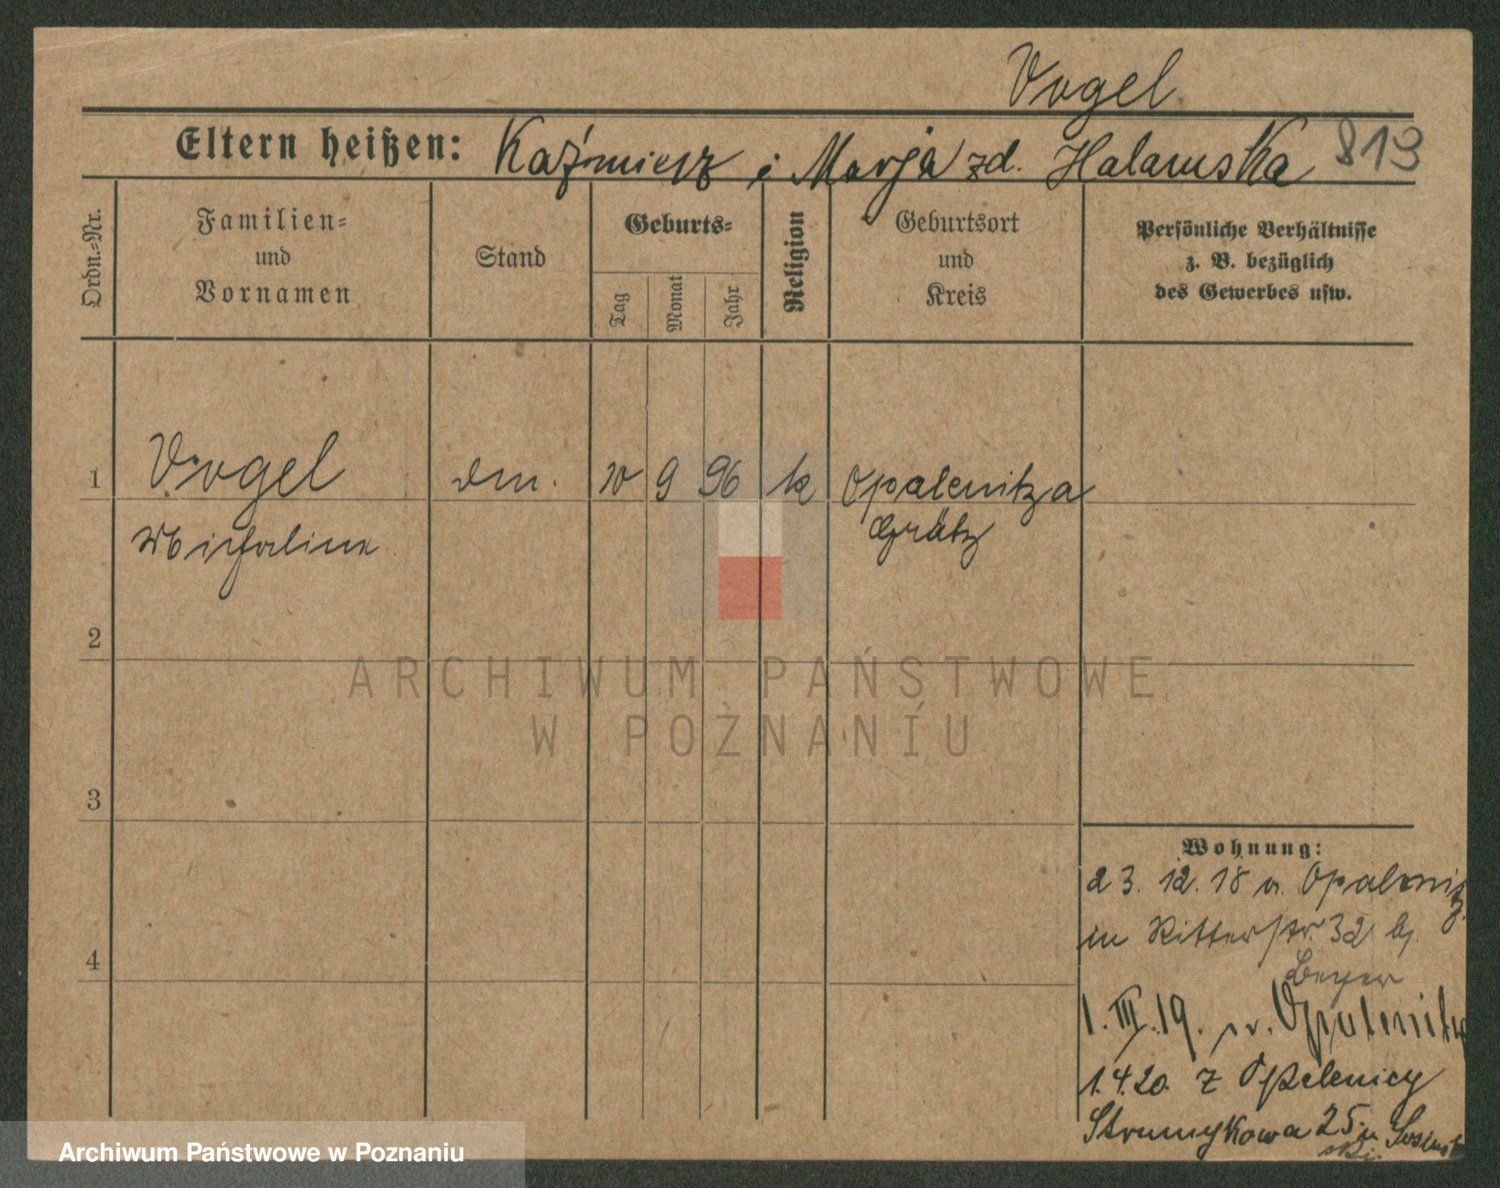 Vogel
Eltern heißen: Kaźmierz i Marja zd. Halamska 819
Ordn.=Nr.
Familien=
und
Vornamen
Stand
Geburts=
Tag
Monat
Jahr
Religion
Geburtsort
und
Kreis
Persönliche Verhältnisse
z. B. bezüglich
des Gewerbes usw.
1 Vogel 9 96 k Opalenitza
Michaline Grätz
2
3
4
Wohnung:
23. 12. 18 v. Opalenitz
in Ritterstr. 32 b.
Beyer
1. III. 19. Opalenitz
1.4.20. z Opalenicy
Strumykowa 25
ARCHIWUM PAŃSTWOWE
W POZNANIU
Archiwum Państwowe w Poznaniu